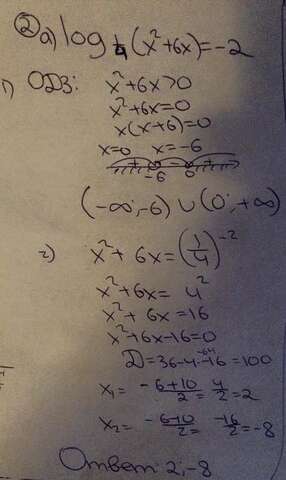 ② а) log 1/4 (x²+6x)=-2
1) ОДЗ: x²+6x>0
x²+6x=0
x(x+6)=0
x=0 x=-6
+ - +
-6 0
(-∞;-6) ∪ (0;+∞)
2) x²+6x=(1/4)⁻²
x²+6x= 4²
x²+6x=16
x²+6x-16=0
-64
D=36-4·-16=100
x₁= -6+10/2= 4/2=2
x₂= -6-10/2= -16/2=-8
Ответ: 2;-8